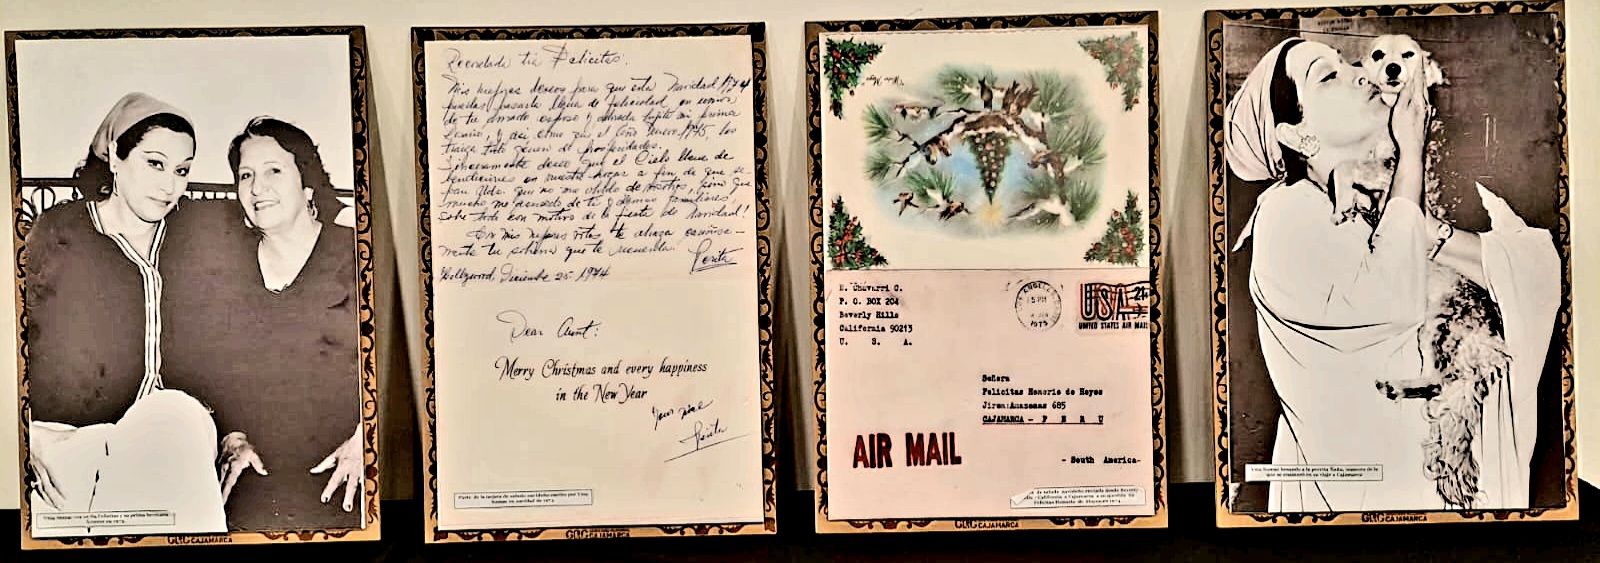 GRC CAJAMARCA
Recordada tía Felicitas:
Mis mejores deseos para que esta Navidad 1974
puedas pasarla llena de felicidad en unión
de tu esposo y mi prima
y así como que el Año Nuevo 1975, les
traiga todo género de prosperidades.
Sinceramente deseo que el Cielo llene de
bendiciones en vuestro hogar a fin de que
sean Uds. que no me olvido de Uds., sino que
mucho me acuerdo de ti y demás familiares
sobre todo con motivo de la fiesta de Navidad!
Con mis mejores votos te abraza cariñosa-
mente tu sobrina que te recuerda.
Hollywood, Diciembre 25-1974
Dear Aunt:
Merry Christmas and every happiness
in the New Year
Your niece
Parte de la tarjeta de saludo navideño escrito por Yma
Sumac en navidad de 1974
GRC CAJAMARCA
E. Chavarri C.
P. O. BOX 204
Beverly Hills
California 90213
U. S. A.
LOS ANGELES
PM
1975
USA 21
UNITED STATES AIR MAIL
Señora
Felicitas Honorio de Reyes
Jiron:Amazonas 685
CAJAMARCA - P E R U
AIR MAIL
- South America-
de saludo navideño enviada desde Beverly
California a Cajamarca
GRC CAJAMARCA
Yma Sumac besando a la perrita momento de la
en su viaje a Cajamarca
GRC CAJAMARCA